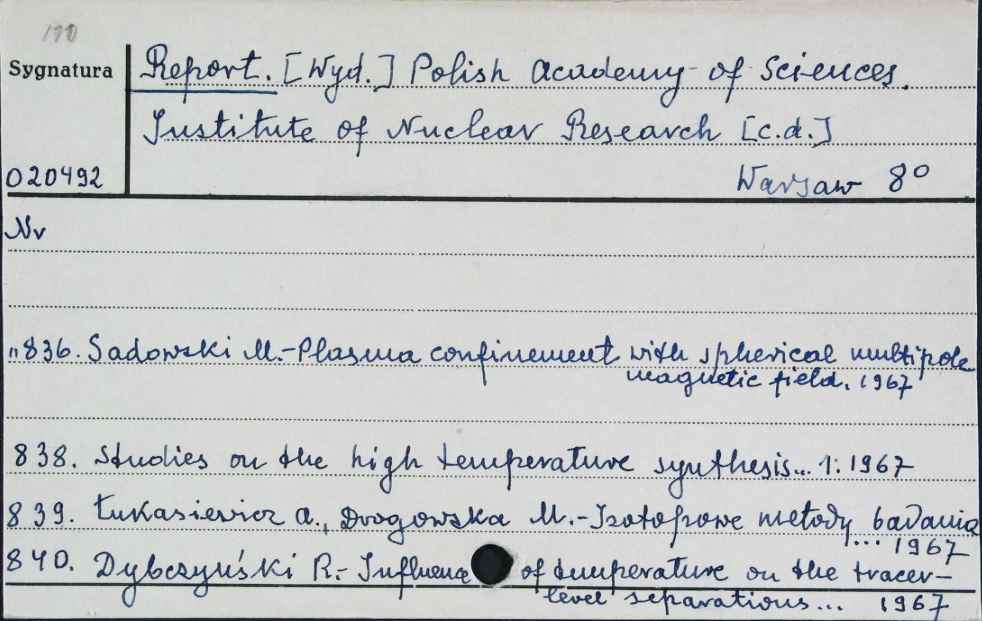 110
Sygnatura
Report. [Wyd.] Polish Academy of Sciences.
Institute of Nuclear Research [c.d.]
020492
Warsaw 8°
Nr
"836. Sadowski M.-Plasma confinement with spherical multipole
magnetic field. 1967
838. Studies on the high temperature synthesis... 1: 1967
839. Łukasiewicz A., Drogowska M.-Izotopowe metody badania
... 1967
840. Dybczyński R.- Influence of temperature on the tracer-
level separations... 1967